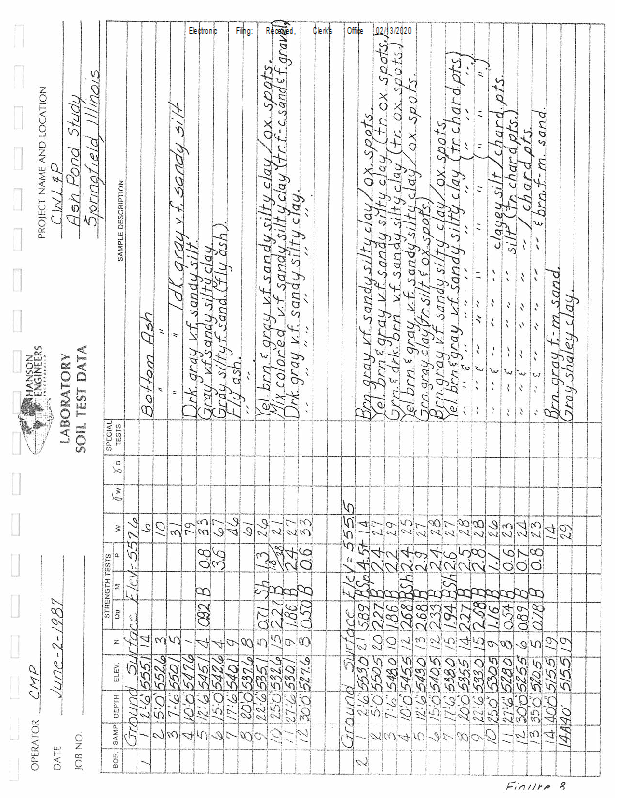 Electronic Filing: Received, Clerk's Office 02/13/2020
HANSON ENGINEERS
LABORATORY
SOIL TEST DATA
OPERATOR CMP
DATE June-2-1987
JOB NO.
PROJECT NAME AND LOCATION
CWL&P
Ash Pond Study
Springfield Illinois
BOR. SAMP. DEPTH ELEV. N STRENGTH TESTS Qu M P W γw γD SPECIAL TESTS SAMPLE DESCRIPTION
Ground Surface Elev= 557.6
1 1 2.6 555.1 14 6 Bottom Ash
2 5.0 552.6 3 10 " "
3 7.6 550.1 5 31 " " / dk. gray v.f. sandy silt
4 10.0 547.6 1 79 Drk. gray v.f. sandy silt
5 12.6 545.1 4 0.92 B 0.8 33 Gray v.f. sandy silty clay
6 15.0 542.6 4 3.6 67 Gray silty f. sand (Fly ash)
7 17.6 540.1 9 46 Fly ash.
8 20.0 537.6 8 61 " "
9 22.6 535.1 5 0.71 Sh 1.3 26 Yel. brn & gray v.f. sandy silty clay / ox. spots.
10 25.0 532.6 15 2.27 B 21 Mix colored v.f. sandy silty clay (tr. f-c. sand & f. gravel)
11 27.6 530.1 9 1.86 B 2.4 27 Drk. gray v.f. sandy silty clay.
12 30.0 527.6 8 0.50 B 0.6 33 " " " " " "
Ground Surface Elev= 555.5
2 1 2.6 553.0 21 5.89 4.5+ 14 Brn. gray v.f. sandy silty clay / ox. spots.
2 5.0 550.5 20 2.27 B 2.4 27 Yel. brn & gray v.f. sandy silty clay (tr. ox. spots.)
3 7.6 548.0 10 1.86 B 2.2 29 Gray & drk. brn v.f. sandy silty clay (tr. ox. spots.)
4 10.0 545.5 12 2.68 BSh 2.4 25 Yel. brn & gray v.f. sandy silty clay / ox. spots.
5 12.6 543.0 13 2.68 B 2.9 27 Grn. gray clay (tr. silt & ox spots)
6 15.0 540.5 12 2.33 B 2.4 28 Brn. gray v.f. sandy silty clay / ox spots.
7 17.6 538.0 11 1.94 BSh 2.6 27 Yel. brn & gray v.f. sandy silty clay (tr. chard pts.)
8 20.0 535.5 14 2.27 B 2.5 28 " " & " " " " " " "
9 22.6 533.0 15 2.48 B 2.8 28 " " & " " " " " " "
10 25.0 530.5 9 1.16 B 1.7 26 " " & " " " clayey silt / chard pts.
11 27.6 528.0 8 0.54 B 0.6 23 " " & " " " silt (tr. chard pts.)
12 30.0 525.5 6 0.89 B 0.7 24 " " & " " " " / chard pts.
13 35.0 520.5 5 0.78 B 0.8 23 " " & " " " " & brn. f-m. sand.
14 40.0 515.5 19 14 Brn. gray f-m. sand.
14A 40' 515.5 19 29 Gray shaley clay.
Figure 8